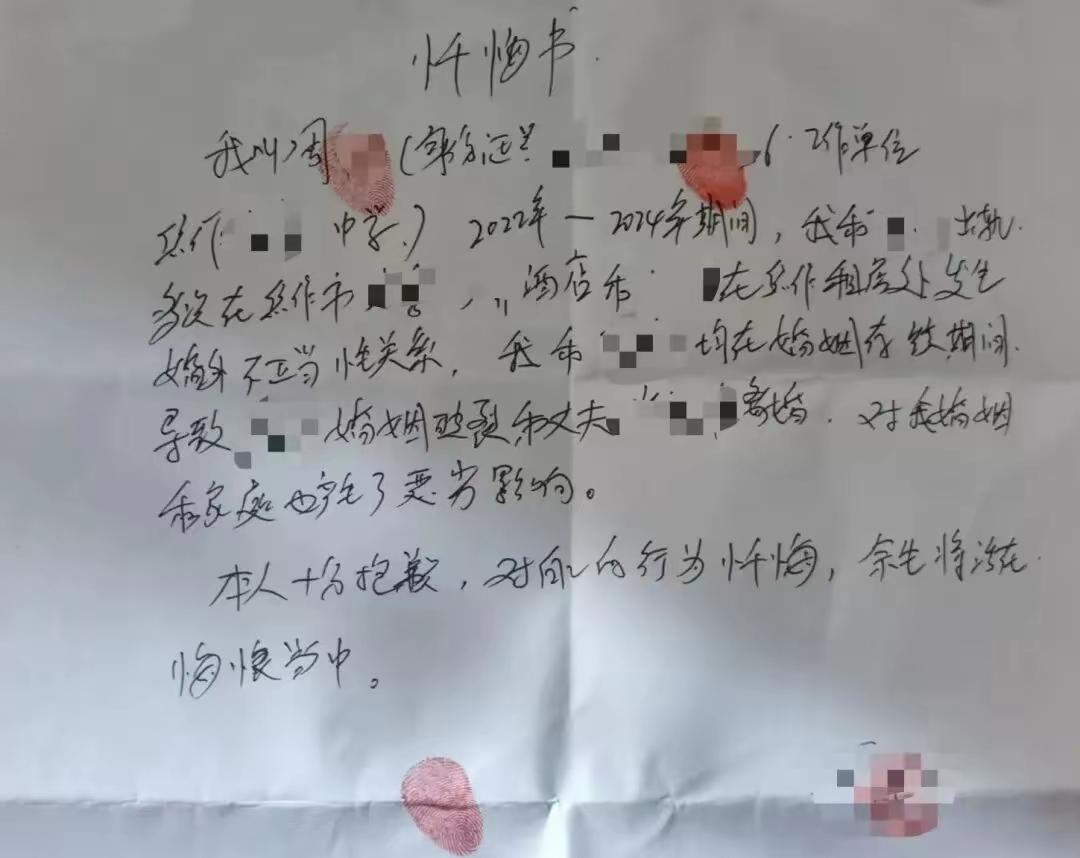 忏悔书
我叫周 (身份证号 6. 工作单位
焦作 中学.) 2022年—2024年期间,我和 出轨.
多次在焦作市 , 酒店和 在焦作租房处发生
婚外不正当性关系, 我和 均在婚姻存续期间.
导致 婚姻破裂和丈夫 离婚. 对我婚姻
和家庭也产生了恶劣影响。
本人十分抱歉,对自己的行为忏悔,余生将活在.
悔恨当中。